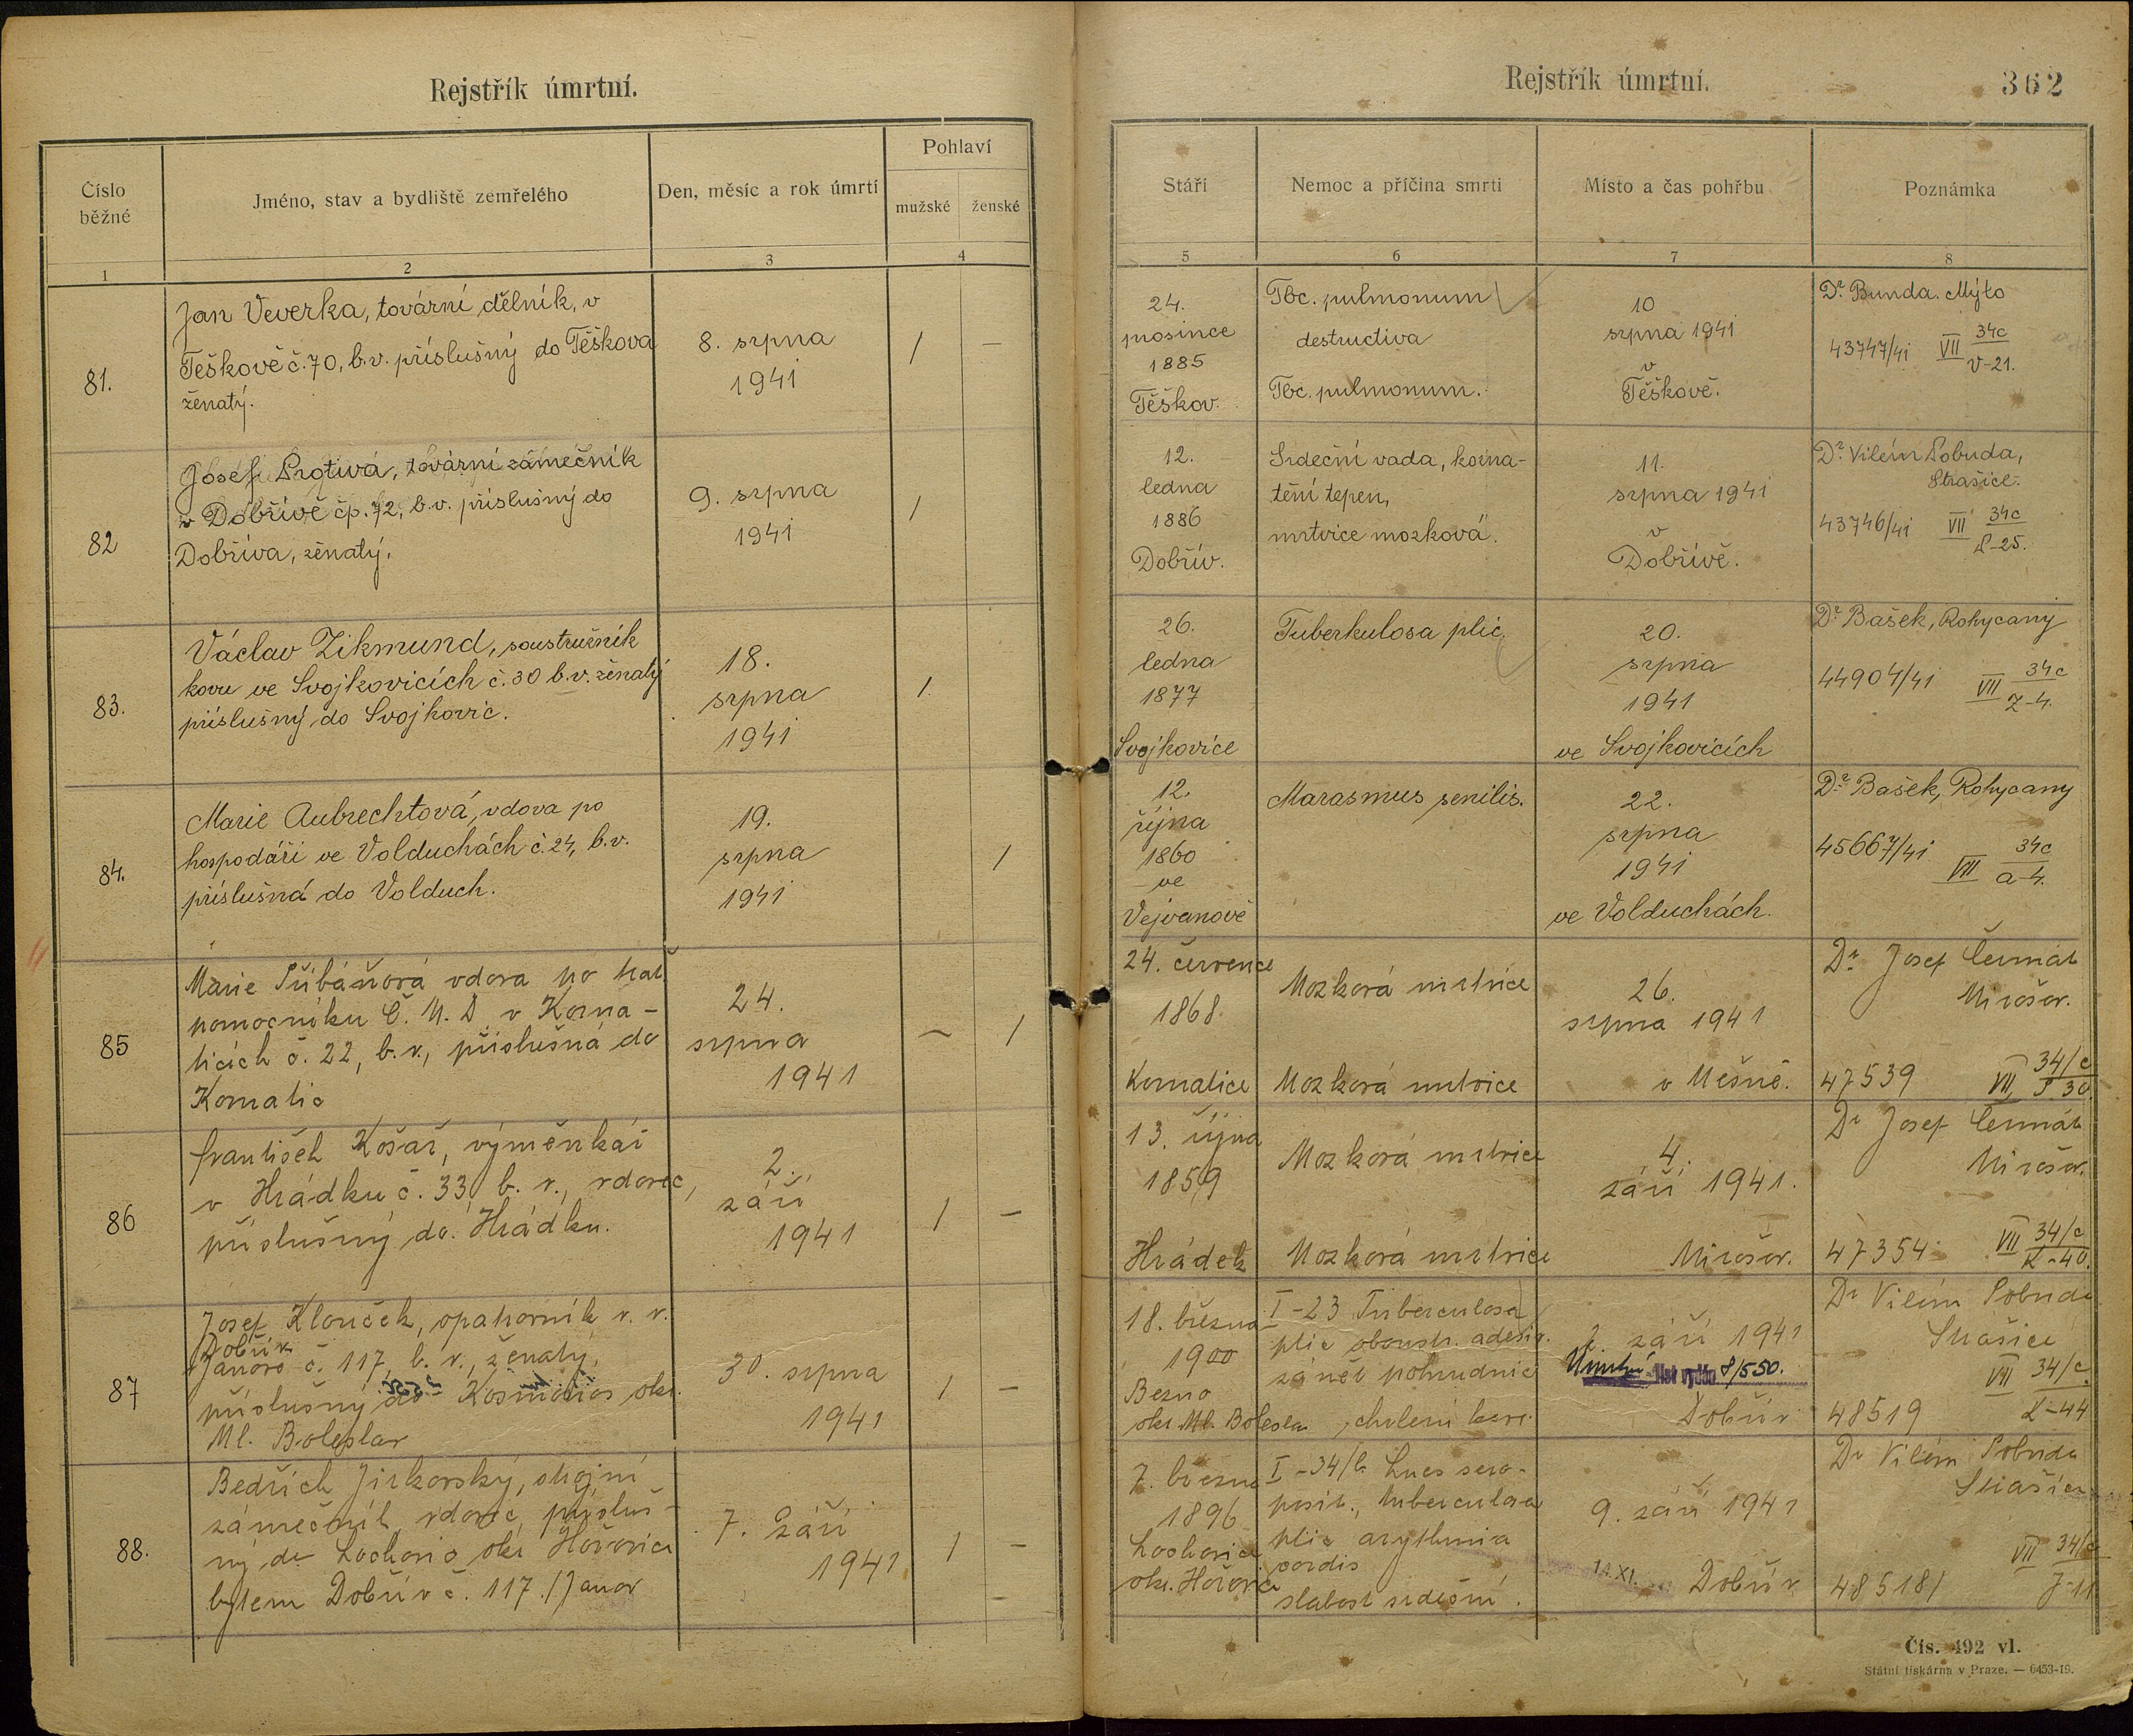 Rejstřík úmrtní.
Číslo běžné
Jméno, stav a bydliště zemřelého
Den, měsíc a rok úmrtí
Pohlaví
mužské
ženské
1
2
3
4
81.
Jan Veverka, tovární dělník, v
Těškově č. 70, b. v. příslušný do Těškova
ženatý.
8. srpna
1941
/
—
82
Josef Protiva, tovární zámečník
v Dobřívě čp. 72, b. v. příslušný do
Dobříva, ženatý.
9. srpna
1941
/
83.
Václav Zikmund, soustružník
kovu ve Svojkovicích č. 30 b. v. ženatý
příslušný do Svojkovic.
18.
srpna
1941
/
84.
Marie Aubrechtová, vdova po
hospodáři ve Volduchách č. 24, b. v.
příslušná do Volduch.
19.
srpna
1941
/
85
Marie vdova po
pomocníku Č. M. D v Korna-
ticích č. 22, b. v., příslušná do
Kornatic
24.
srpna
1941
—
/
86
František Košař, výměnkář
v Hrádku č. 33 b. v., vdovec,
příslušný do Hrádku.
2.
září
1941
/
—
87
Josef Klouček, opatrovník v. v.
Dobřív
Janov č. 117, b. v., ženatý,
příslušný do Kosmonos okr.
Ml. Boleslav
30. srpna
1941
/
—
88.
Bedřich Jirkovský, strojní
zámečník, vdovec, přísluš-
ný do Lochovic okr. Hořovice
bytem Dobřív č. 117 /Janov
7. září
1941
/
—
—
Rejstřík úmrtní.
362
Stáří
Nemoc a příčina smrti
Místo a čas pohřbu
Poznámka
5
6
7
8
24.
prosince
1885
Těškov.
Tbc. pulmonum
destructiva
Tbc. pulmonum.
10
srpna 1941
v
Těškově.
Dr. Bunda. Mýto
43747/41 VII 34c
V-21.
12.
ledna
1886
Dobřív.
Srdeční vada, korna-
tění tepen,
mrtvice mozková.
11.
srpna 1941
v
Dobřívě.
Dr. Vilém Lobuda,
Strašice.
43746/41 VII 34c
P-25.
26.
ledna
1877
Svojkovice
Tuberkulosa plic,
20.
srpna
1941
ve Svojkovicích
Dr. Bašek, Rokycany
44904/41 VII 34c
Z-4.
12.
října
1860
ve
Vejvanově
Marasmus senilis.
22.
srpna
1941
ve Volduchách.
Dr. Bašek, Rokycany
45667/41 VII 34c
a-4.
24. července
1868
Kornatice
Mozková mrtvice
Mozková mrtvice
26.
srpna 1941
v Mešně.
Dr. Josef Čermák
Mirošov.
47539 VII 34/c
30.
13. října
1859
Hrádek
Mozková mrtvice
Mozková mrtvice
4.
září 1941.
Mirošov.
Dr Josef Čermák
Mirošov.
47354 VII 34/c
K-40.
18. března
1900
Bezno
okr. Ml. Boleslav
I-23 Tuberculosa
plic oboustr.
zánět pohrudnice
, chrlení krve.
2. září 1941
Úmrtní list vydán 8/550.
Dobřív
Dr Vilém Lobuda
Strašice
VII 34/c
48519 K-44
7. března
1896
Lochovice
okr. Hořovice
I-34/b Lues sero-
posit., tuberculosa
plic arythmia
cordis
slabost srdeční.
9. září 1941
14. XI.
Dobřív
Dr Vilém Lobuda
Strašice
VII 34/c
48518/ J-11
Čís. 492 vl.
Státní tiskárna v Praze. — 6453-19.